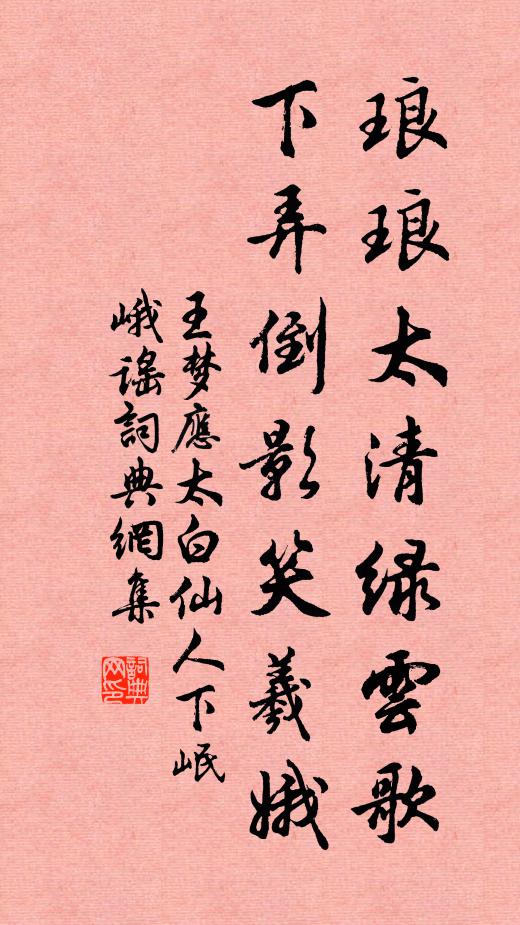 琅琅太清緑雲歌
下弄倒影笑羲娥
王梦應太白仙人下岷
峨谣詞典網集
詞典
网印